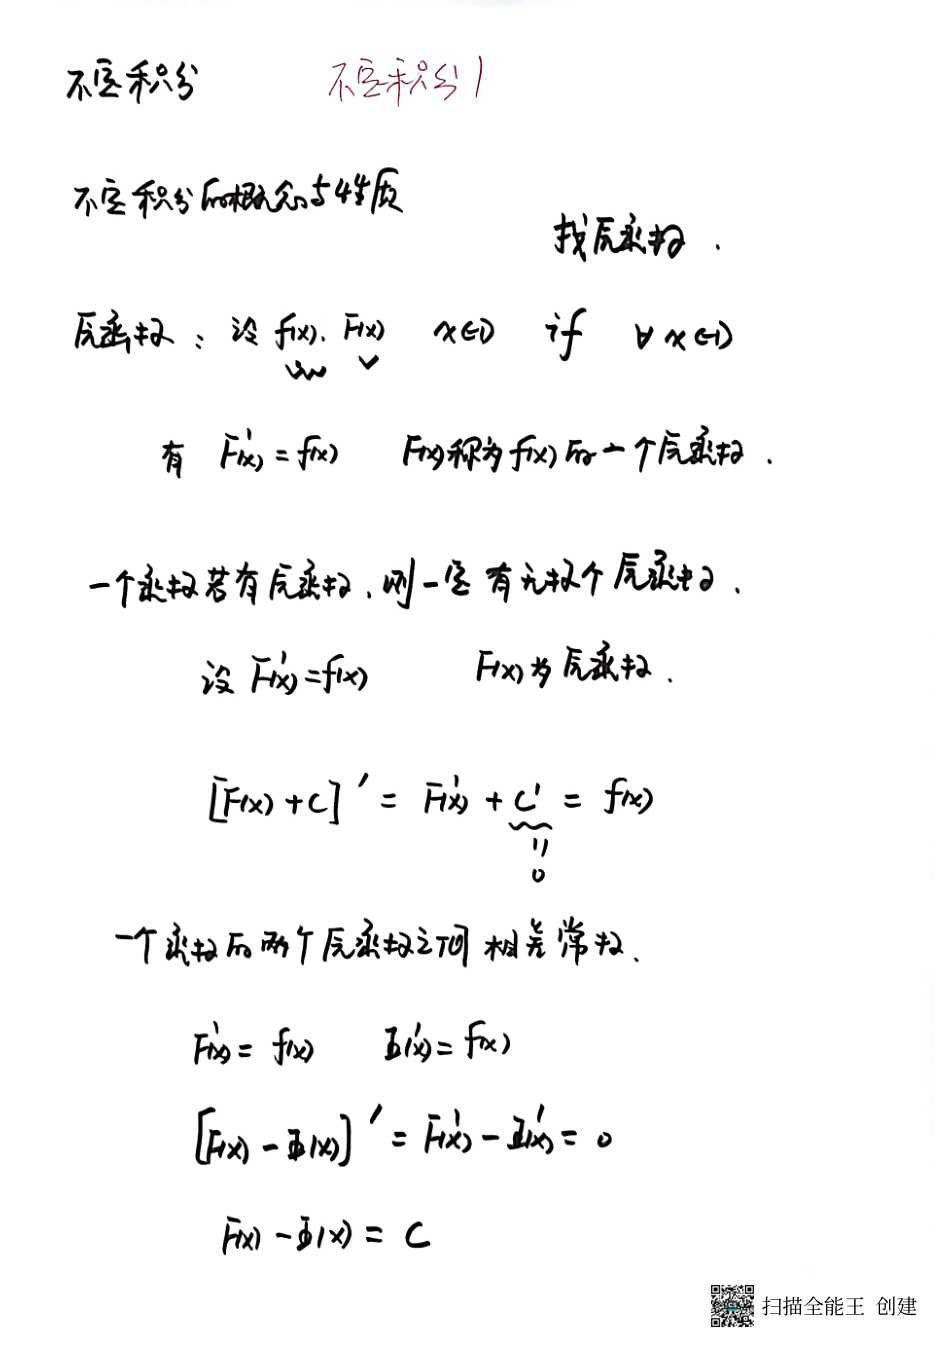 不定积分 不定积分1
不定积分的概念与性质
找原函数.
原函数：设 f(x). F(x) x∈I if ∀x∈I
有 F'(x) = f(x) F(x)称为f(x)的一个原函数.
一个函数若有原函数，则一定有无数个原函数.
设 F'(x)=f(x) F(x)为原函数.
[F(x)+C]' = F'(x) + C' = f(x)
=
0
一个函数的两个原函数之间相差常数.
F'(x) = f(x) Φ'(x) = f(x)
[F(x) - Φ(x)]' = F'(x) - Φ'(x) = 0
F(x) - Φ(x) = C
扫描全能王 创建